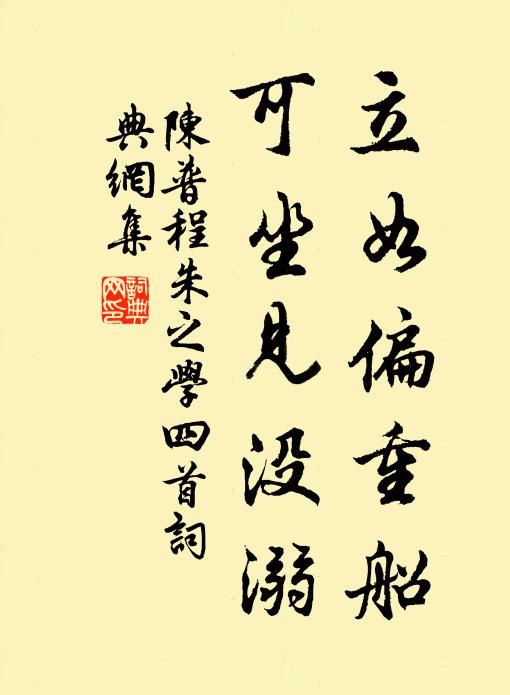 立如偏重船
可坐見没溺
陳普程朱之學四首詞
典網集
詞典
网印